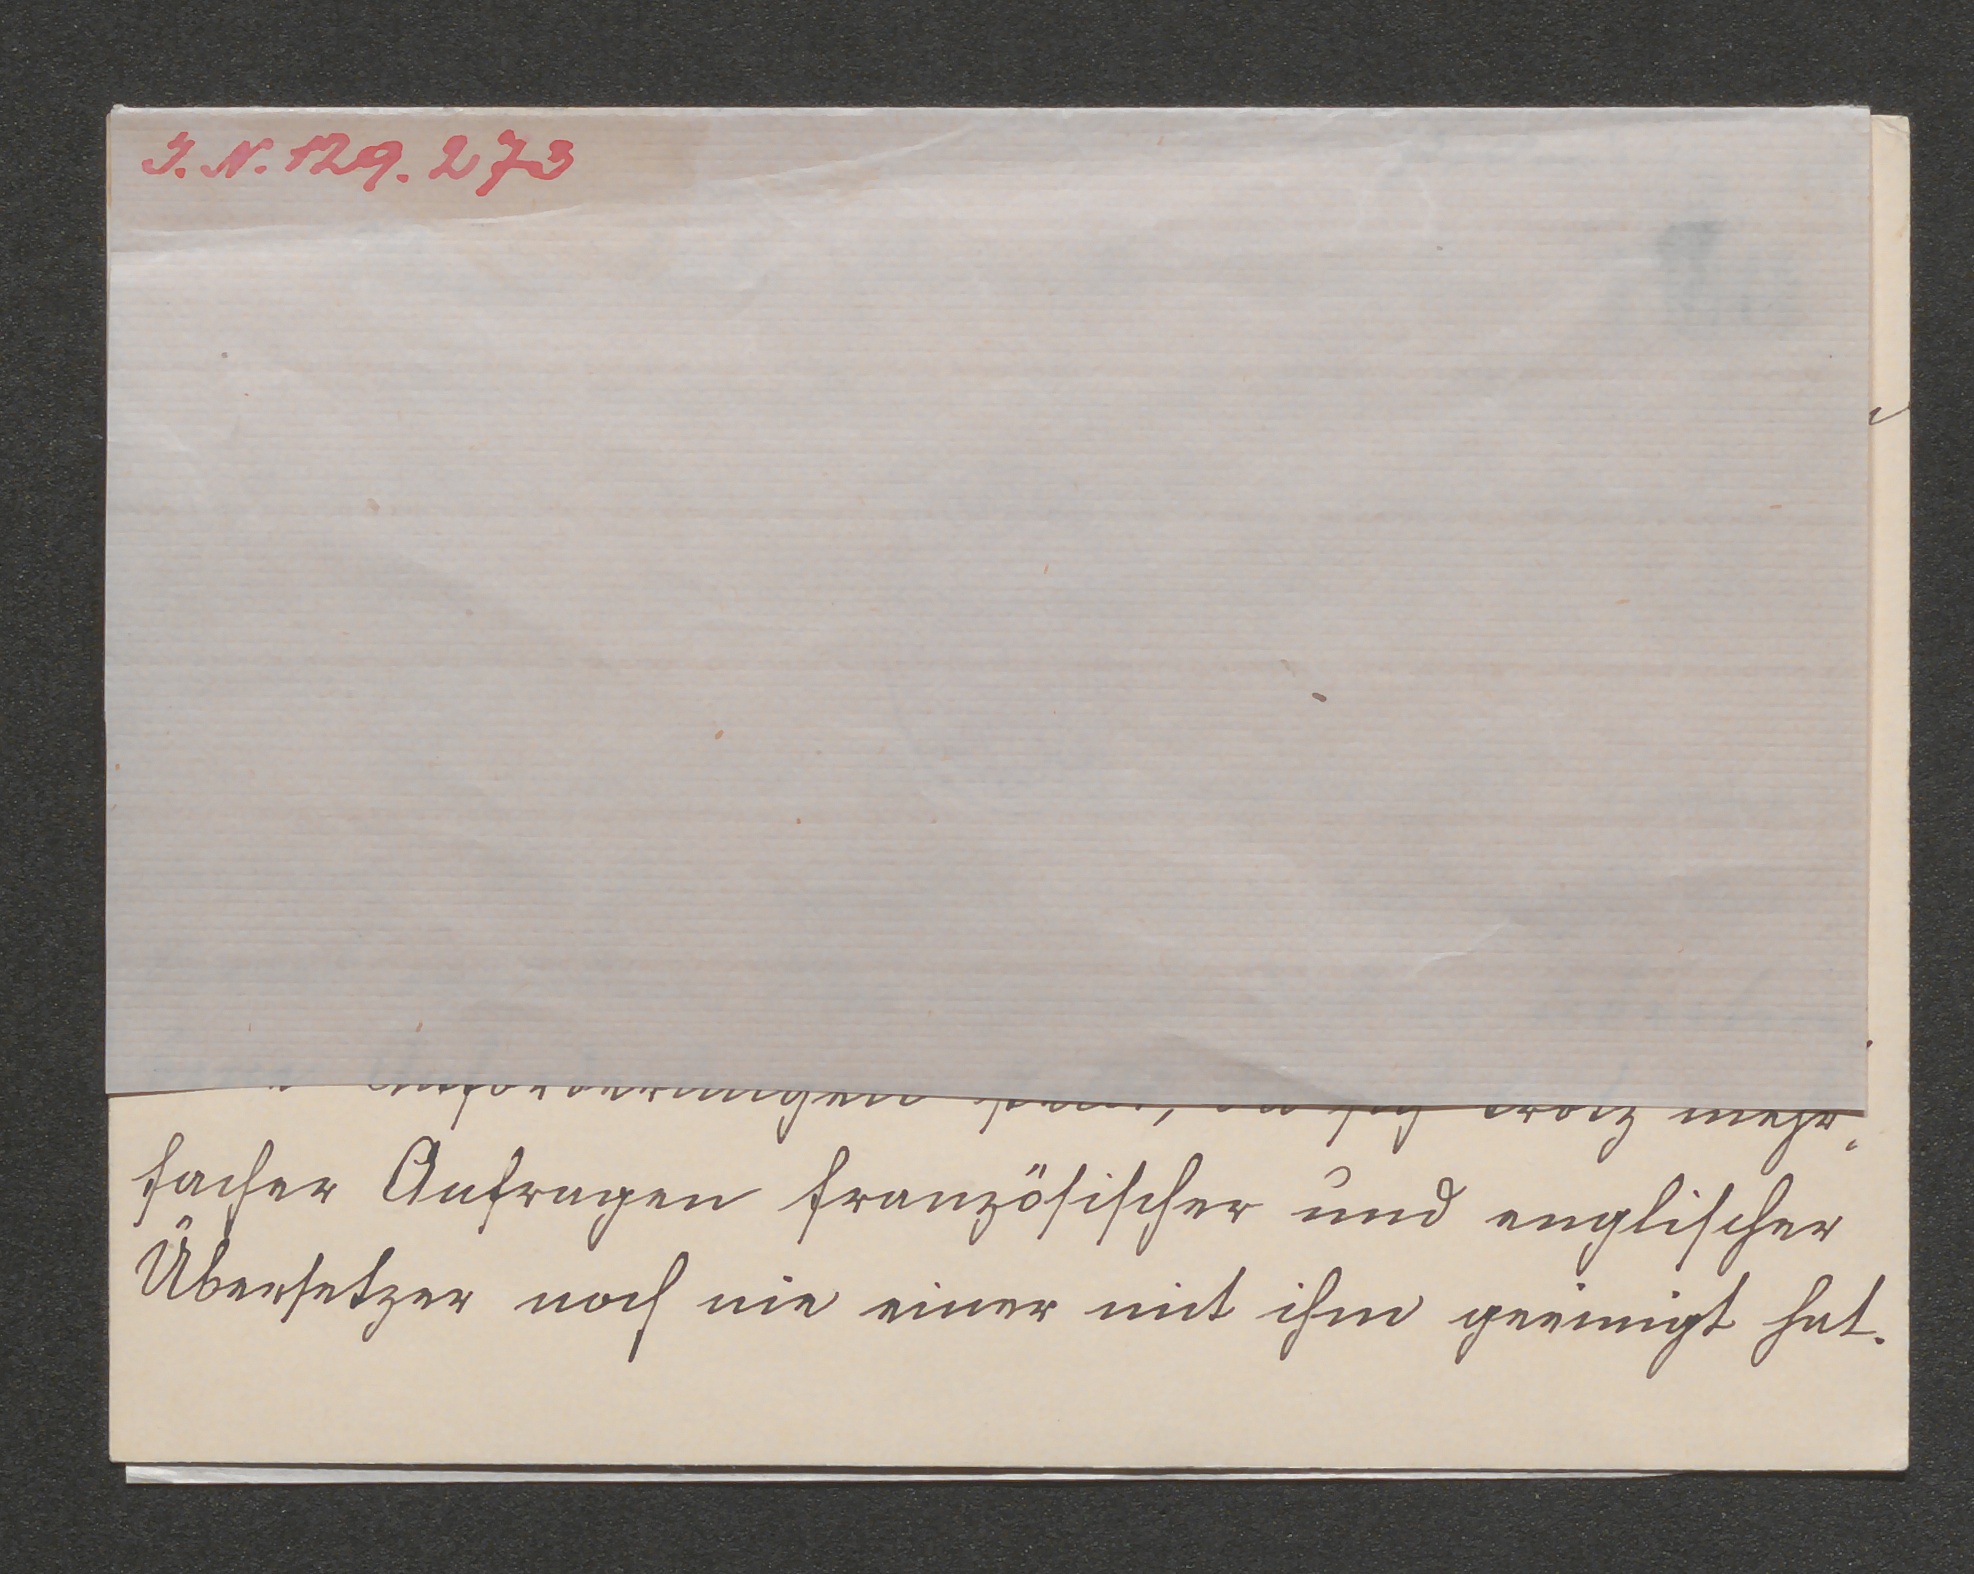 I. N. 129.273
Anforderungen trotz mehr-
facher Anfragen französischer und englischer
Übersetzer noch nie einer mit ihm geeinigt hat.